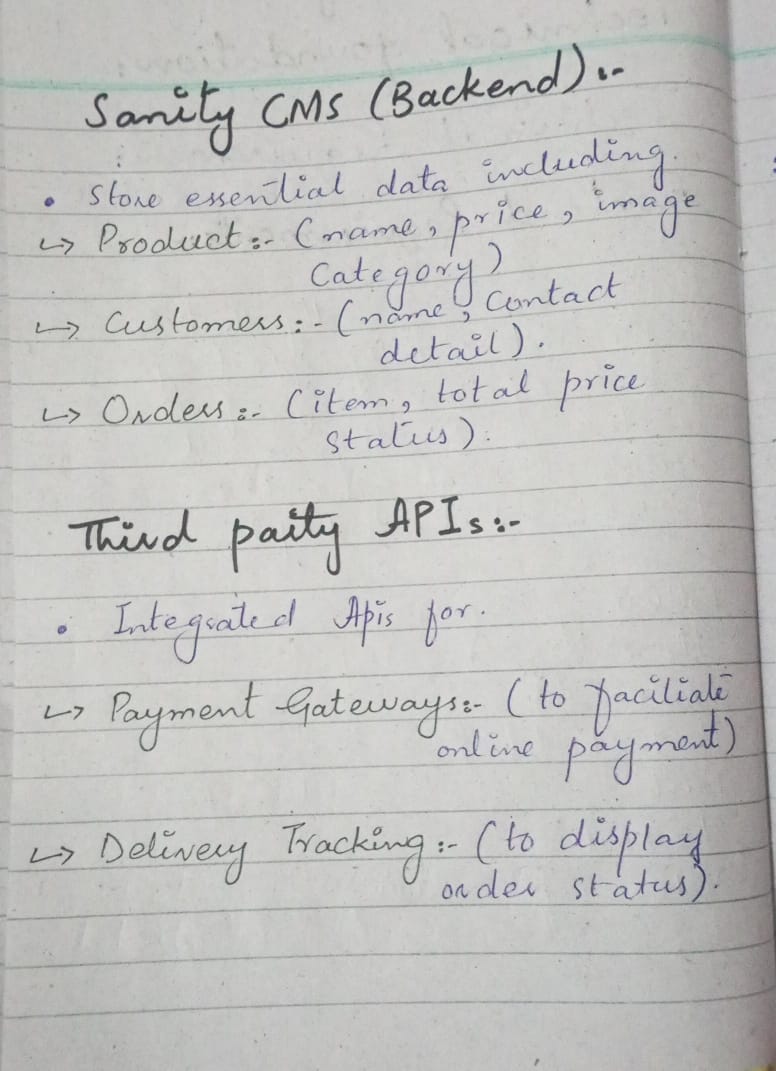 Sanity CMS (Backend) :-
• Store essential data including.
↳ Product :- (name, price, image
Category)
↳ Customers :- (name, Contact
detail).
↳ Orders :- (item, total price
status).
Third party APIs :-
• Integrated Apis for.
↳ Payment Gateways :- (to faciliate
online payment)
↳ Delivery Tracking :- (to display
order status).